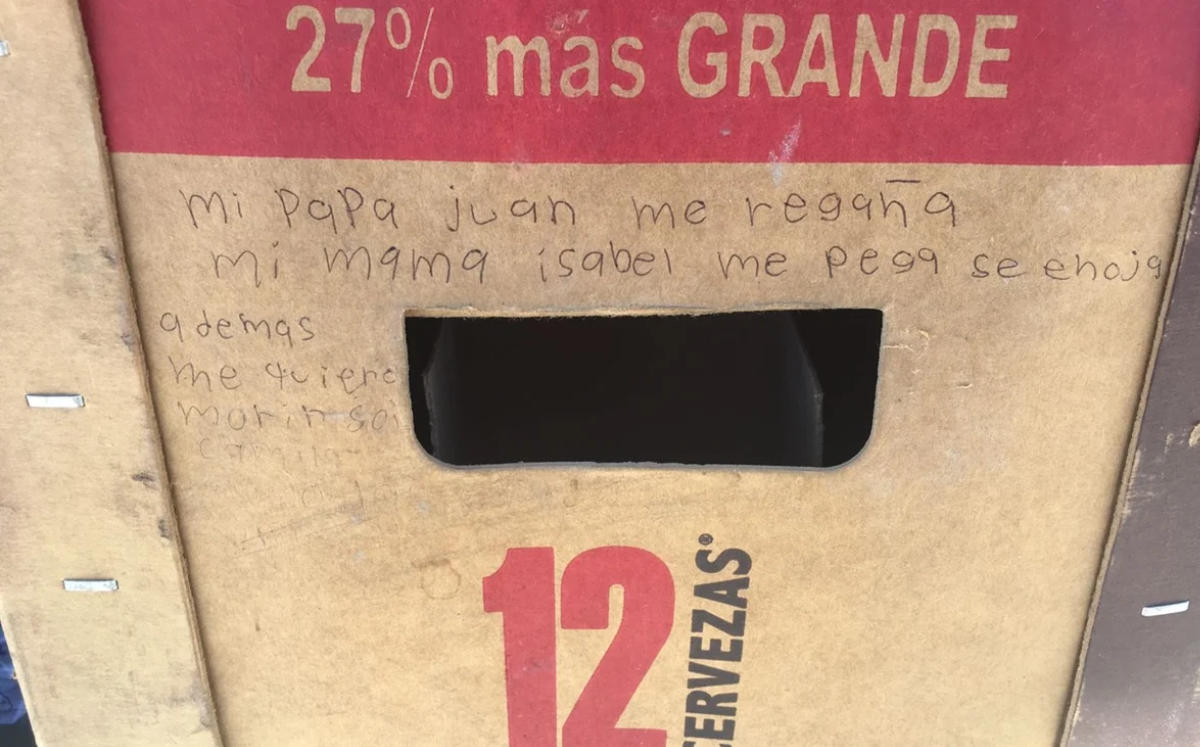 27% más GRANDE
mi papa juan me regaña
mi mama isabel me pega se enoja
ademas
me quiero
morir soi
Camila
12
CERVEZAS